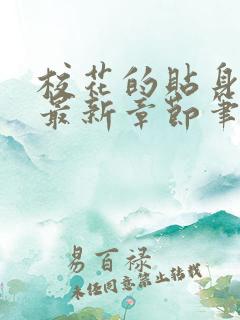 校花的贴身
最新章节笔
易百禄
未经同意禁止转载